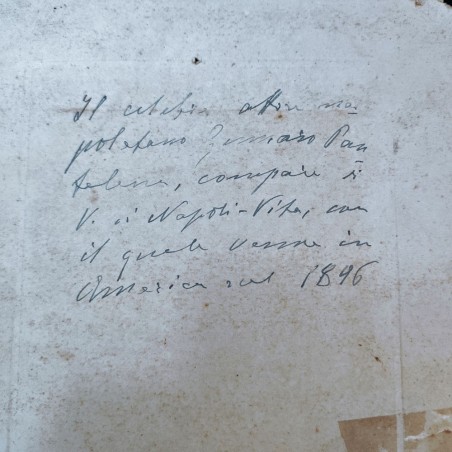 Il celebre attore na-
poletano Gennaro Pan
talena, compare di
V. di Napoli-Vita, con
il quale venne in
America nel 1896